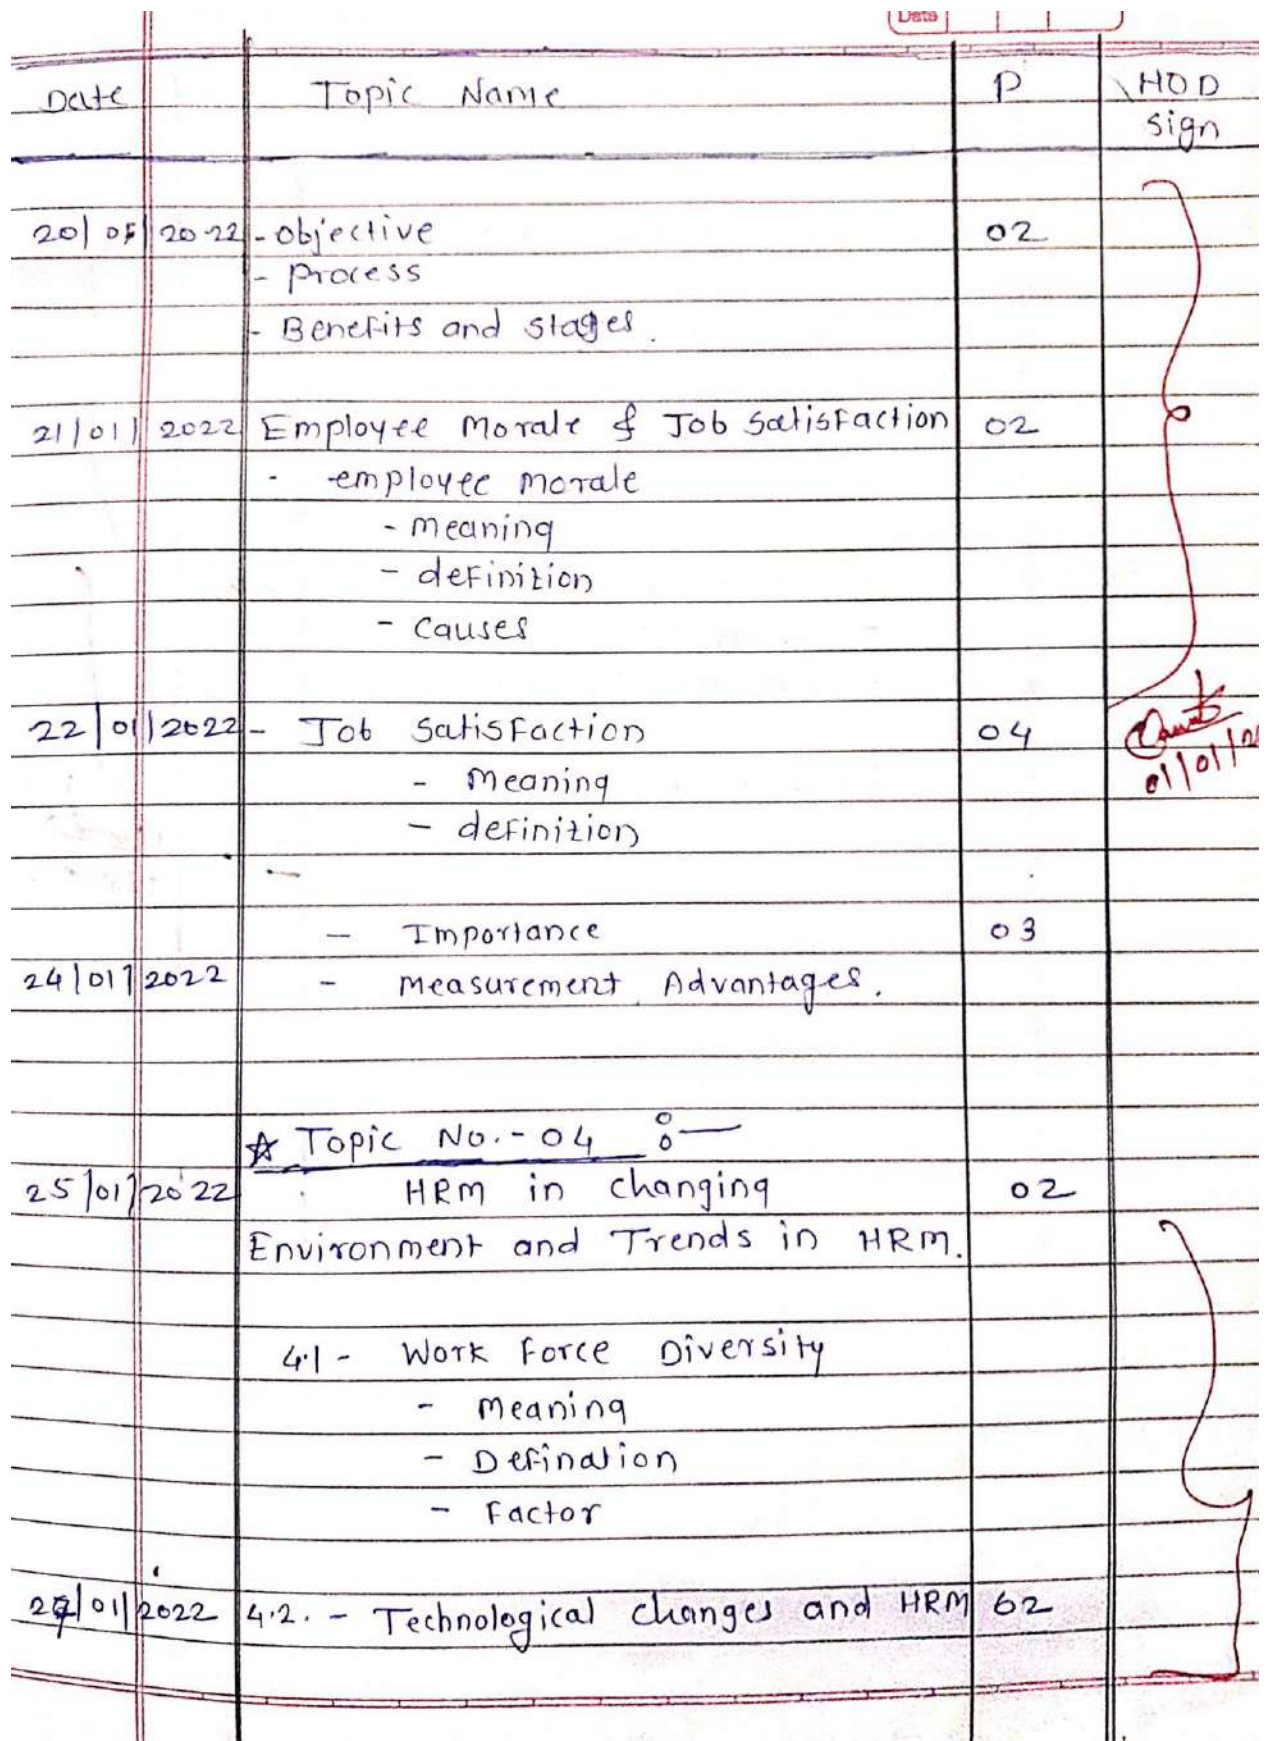 Date
Date Topic Name P HOD
sign
20/01/2022 - Objective 02
- Process
- Benefits and stages.
21/01/2022 Employee Morale & Job Satisfaction 02
- employee morale
- meaning
- definition
- causes
22/01/2022 - Job Satisfaction 04
- Meaning
- definition
- Importance 03
24/01/2022 - Measurement Advantages.
☆ Topic No.- 04 :—
25/01/2022 HRM in changing 02
Environment and Trends in HRM.
4.1 - Work Force Diversity
- Meaning
- Defination
- Factor
01/2022 4.2. - Technological changes and HRM 02